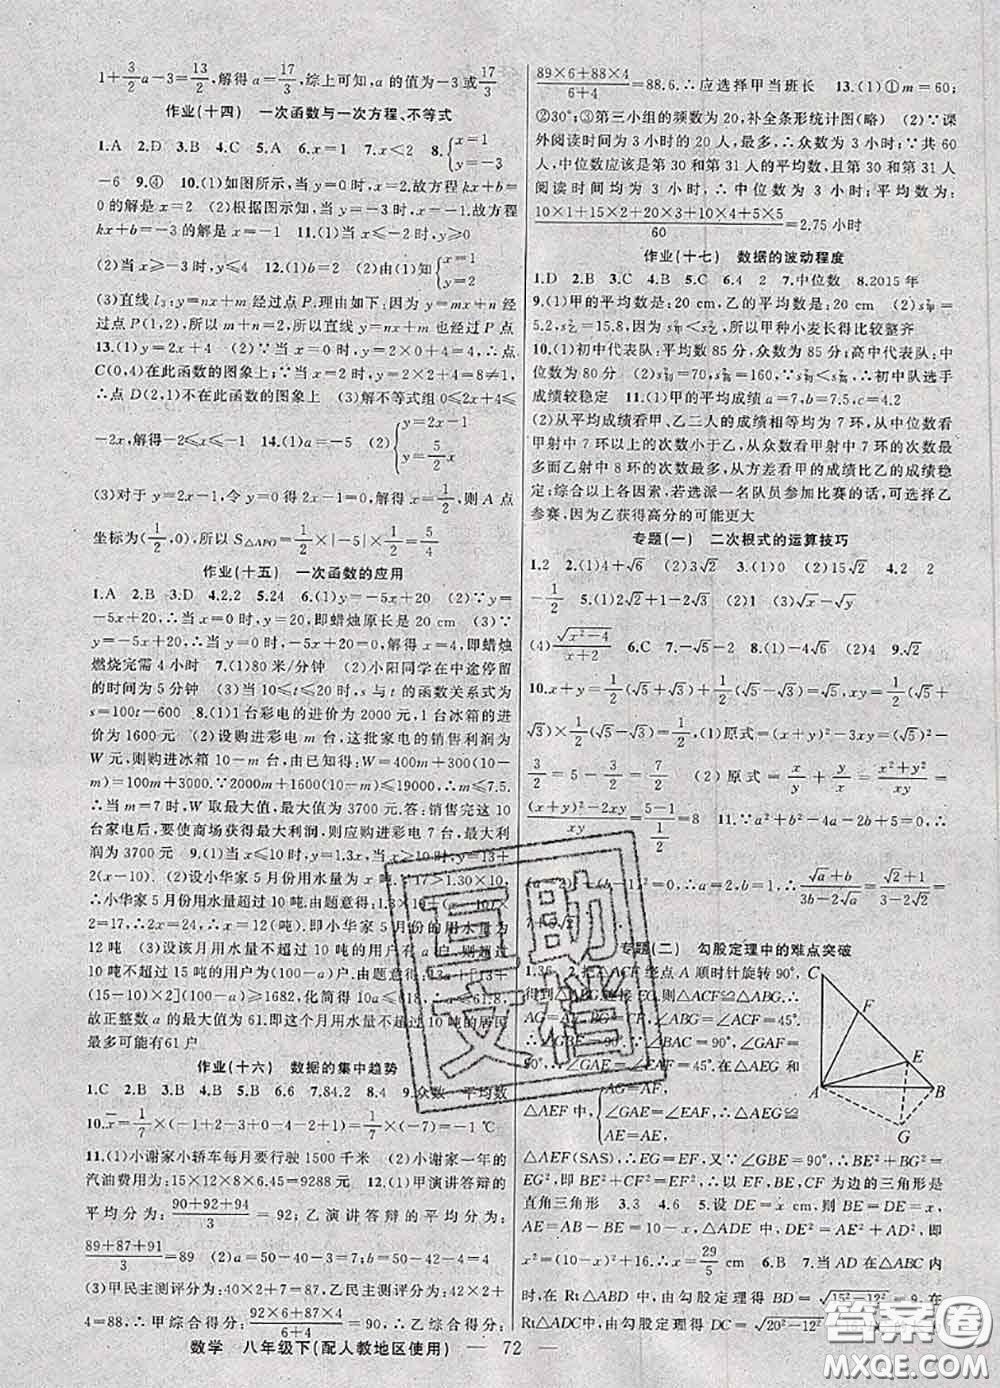 1+3/2a-3=13/2,解得a=17/3,综上可知,a的值为-3或17/3
作业(十四) 一次函数与一次方程、不等式
1.A 2.D 3.B 4.C 5.A 6.x=0 7.x<2 8.{x=-1 y=-3
-6 9.④ 10.(1)如图所示,当y=0时,x=2,故方程kx+
b=0的解是x=2 (2)根据图示知,当y=-2时,x=-1,故方程
kx+b=0的解是x=-1 11.(1)当x<2时,y>0
(2)当x≤0时,y≤4 12.(1)b=2 (2){x=1 y=2
(3)直线l₃:y=nx+m经过点P.理由如下:因为y=mx+n经
过点P(1,2),所以m+n=2,所以直线y=nx+m也经过P点
13.(1)y=2x+4 (2)∵当x=0时,y=2×0+4=4,∴点
C(0,4)在此函数的图象上;∵当x=2时,y=2×2+4=8≠1,
∴点D(2,1)不在此函数的图象上 (3)解不等式组0≤2x+4≤
2x,解得-2≤x≤-1 14.(1)a=-5 (2){y=2x-1 y=5/2x
(3)对于y=2x-1,令y=0得2x-1=0,解得x=1/2,则A点
坐标为(1/2,0),所以S△APO=1/2×|-5|×1/2=5/4
作业(十五) 一次函数的应用
1.A 2.B 3.D 4.2.2 5.24 6.(1)y=-5x+20 (2)∵y=
-5x+20,∴当x=0时,y=20,即蜡烛原长是20 cm (3)∵
y=-5x+20,∴当y=0时,-5x+20=0,解得x=4,即蜡烛
燃烧完需4小时 7.(1)80米/分钟 (2)小阳同学在中途停留
的时间为5分钟 (3)当10≤t≤20时,s与t的函数关系式为
s=100t-600 8.(1)1台彩电的进价为2000元,1台冰箱的进
价为1600元 (2)设购进彩电m台,这批家电的销售利润为
W元,则购进冰箱10-m台,由已知得:W=400m+300(10-
m)=100m+3000.∵2000m+1600(10-m)≤19000,∴m≤7.5.
∴当m=7时,W取最大值,最大值为3700元.答:销售完这10
台家电后,要使商场获得最大利润,则应购进彩电7台,最大利
润为3700元 9.(1)当x≤10时,y=1.3x,当x>10时,y=13+
2(x-10) (2)设小华家5月份用水量为x吨,17>1.30×10,
∴小华家5月份用水量超过10吨,由题意得:1.3×10+(x-10)×
2=17,2x=24,x=12(吨).即小华家5月份的用水量为
12吨 (3)设该月用水量不超过10吨的用户有a户,则超过
10吨不超过15吨的用户为(100-a)户,由题意得:13a+[13+
(15-10)×2](100-a)≥1682,化简得10a≤618,∴a≤61.8,
故正整数a的最大值为61.即这个月用水量不超过10吨的居民
最多可能有61户
作业(十六) 数据的集中趋势
1.C 2.B 3.B 4.B 5.B 6.5 7.84.2 8.4 9.众数 平均数
10.x̄=1/7×(-1-2+0-4-2+1)=1/7×(-7)=-1℃
11.(1)小谢家小轿车每月要行驶1500千米 (2)小谢家一年的
汽油费用为:15×12×8×6.45=9288元 12.(1)甲演讲答辩的
平均分为:(90+92+94)/3=92;乙演讲答辩的平均分为:
(89+87+91)/3=89 (2)a=50-40-3=7;b=50-42-4=4
(3)甲民主测评分为:40×2+7=87,乙民主测评分为:42×2+
4=88,∴甲综合得分:(92×6+87×4)/(6+4)=90,∴乙综合得分:
(89×6+88×4)/(6+4)=88.6.∴应选择甲当班长 13.(1)①m=60;
②30°;③第三小组的频数为20,补全条形统计图(略) (2)∵课
外阅读时间为3小时的20人,最多,∴众数为3小时;∵共60
人,中位数应该是第30和第31人的平均数,且第30和第31人
阅读时间均为3小时,∴中位数为3小时;平均数为:
(10×1+15×2+20×3+10×4+5×5)/60=2.75小时
作业(十七) 数据的波动程度
1.D 2.B 3.C 4.B 5.C 6.4 2 7.中位数 8.2015年
9.(1)甲的平均数是:20 cm,乙的平均数是:20 cm (2)s²甲=
5.2,s²乙=15.8,因为s²甲<s²乙,所以甲种小麦长得比较整齐
10.(1)初中代表队:平均数85分,众数为85分;高中代表队:中
位数为80分 (2)s²初=70,s²高=160,∵s²初<s²高,∴初中队选手
成绩较稳定 11.(1)甲的平均成绩a=7,b=7.5,c=4.2
(2)从平均成绩看甲、乙二人的成绩相等均为7环,从中位数看
甲射中7环以上的次数小于乙,从众数看甲射中7环的次数
最多而乙射中8环的次数最多,从方差看甲的成绩比乙的成绩稳
定;综合以上各因素,若选派一名队员参加比赛的话,可选择乙
参赛,因为乙获得高分的可能更大
专题(一) 二次根式的运算技巧
1.2 2.(1)4+√6 (2)30 3.(1)0 (2)15√2 4.2 2
-1/2 5.(1)2√2+1-2√3 (2)1 (3)√x-√y
(4)√(x²-4)/(x+2) 6.C 7.-√5-2 8.(1)-4√6 (2)4 9.√2
10.x+y=1/2(√5+√3)+1/2(√5-√3)=√5,xy=1/2(√5+
√3)×1/2(√5-√3)=1/2,(1)原式=(x+y)²-3xy=(√5)²-
3/2=5-3/2=7/2 (2)原式=x/y+y/x=(x²+y²)/xy=
((x+y)²-2xy)/xy=(5-1)/(1/2)=8 11.∵a²+b²-4a-2b+5=0,∴
(√a+b)/(√3b-√a)=(√2+1)/(√3-√2)=
专题(二) 勾股定理中的难点突破
1.36 2.把△ACF绕点A顺时针旋转90°,
得到△ABG.连接EG,则△ACF≌△ABG,∴
AG=AF,∠ABG=∠ACF=45°.
∵∠BAC=90°,∠GAF=
90°.∴∠GAE=∠EAF=45°,在△AEG和
△AEF中,{AG=AF, ∠GAE=∠FAE, AE=AE, ∴△AEG≌
△AEF(SAS),∴EF=EG,又∵∠GBE=90°,∴BE²+BG²=
EG²,即BE²+CF²=EF²,∴以EF,BE,CF为边的三角形是
直角三角形 3.3 4.6 5.设DE=x,则BE=DE=x,
AE=AB-BE=10-x,△ADE中,DE²=AE²+AD²,即
x²=(10-x)²+16.∴x=29/5 cm 6.B 7.当AD在△ABC内
时,在Rt△ADB中,由勾股定理得BD=√(15²-12²)=9,在
Rt△ADC中,由勾股定理得DC=√(20²-12²)
C F E A B G
宜助文档
答案圈
MXQE.COM
数学 八年级下(配人教地区使用) — 72 —